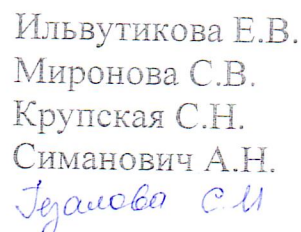 Ильвутикова Е.В.
Миронова С.В.
Крупская С.Н.
Симанович А.Н.
Гезалова С.И